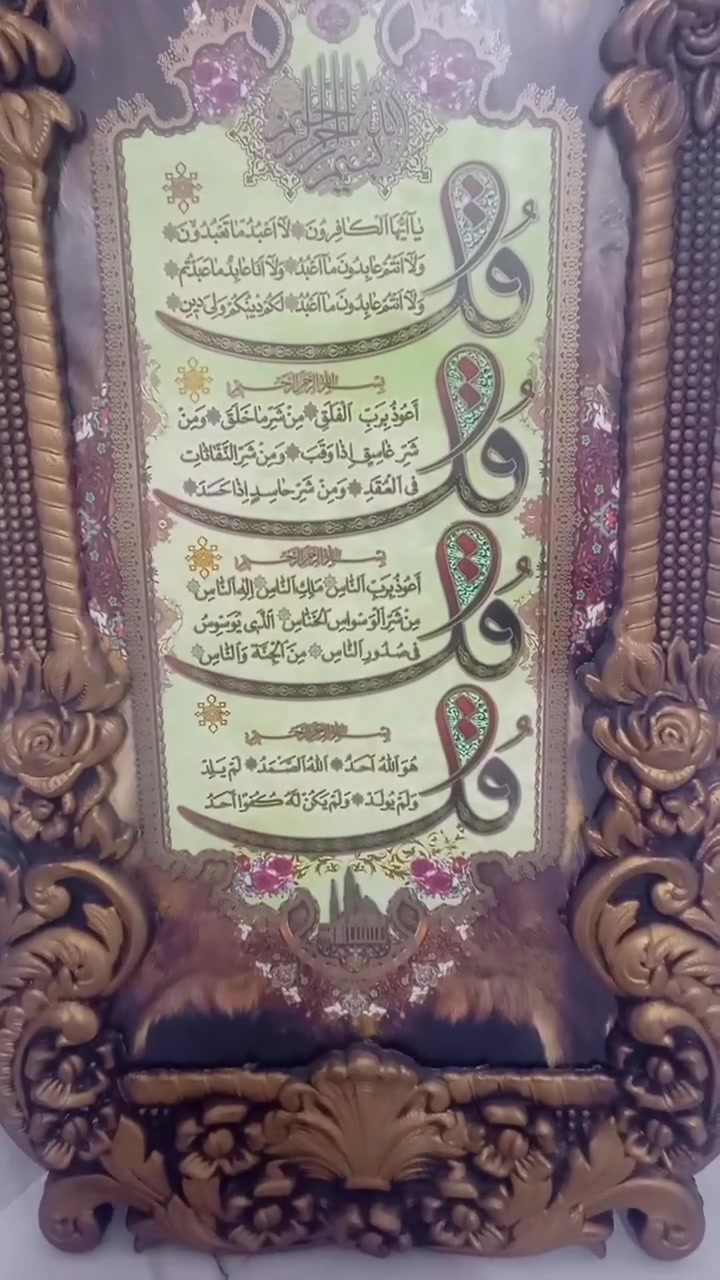 بسم الله الرحمن الرحيم
قل
يَا أَيُّهَا الْكَافِرُونَ لَا أَعْبُدُ مَا تَعْبُدُونَ
وَلَا أَنْتُمْ عَابِدُونَ مَا أَعْبُدُ وَلَا أَنَا عَابِدٌ مَا عَبَدْتُمْ
وَلَا أَنْتُمْ عَابِدُونَ مَا أَعْبُدُ لَكُمْ دِينُكُمْ وَلِيَ دِينِ
بسم الله الرحمن الرحيم
قل
أَعُوذُ بِرَبِّ الْفَلَقِ مِنْ شَرِّ مَا خَلَقَ وَمِنْ
شَرِّ غَاسِقٍ إِذَا وَقَبَ وَمِنْ شَرِّ النَّفَّاثَاتِ
فِي الْعُقَدِ وَمِنْ شَرِّ حَاسِدٍ إِذَا حَسَدَ
بسم الله الرحمن الرحيم
قل
أَعُوذُ بِرَبِّ النَّاسِ مَلِكِ النَّاسِ إِلَهِ النَّاسِ
مِنْ شَرِّ الْوَسْوَاسِ الْخَنَّاسِ الَّذِي يُوَسْوِسُ
فِي صُدُورِ النَّاسِ مِنَ الْجِنَّةِ وَالنَّاسِ
بسم الله الرحمن الرحيم
قل
هُوَ اللَّهُ أَحَدٌ اللَّهُ الصَّمَدُ لَمْ يَلِدْ
وَلَمْ يُولَدْ وَلَمْ يَكُنْ لَهُ كُفُوًا أَحَدٌ